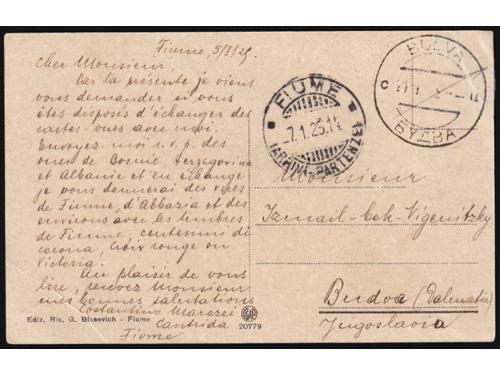 Fiume, 5/I/25.
Cher Monsieur.
Par la présente je viens
vous demander si vous
êtes disposés d'échanger des
cartes-vues avec moi.
Envoyez-moi s.v.p. des
vues de Bosnie, Herzegovina
et Albanie et en échange
je vous donnerai des vues
de Fiume, d'Abbazia et des
environs avec les timbres
de Fiume, centesimi di
corona, croix rouge ou
Victoria.
Au plaisir de vous
lire, recevez Monsieur
mes bonnes salutations
Costantino
Cantrida
Fiume
Ediz. Ris. G. Blasevich - Fiume
20779
FIUME
7.1.25.14
(ARRIVI-PARTENZE)
BUDVA
БУДВА
Monsieur
Izmail-beh-Vigenitzky
Budva (Dalmatia)
Jugoslavia